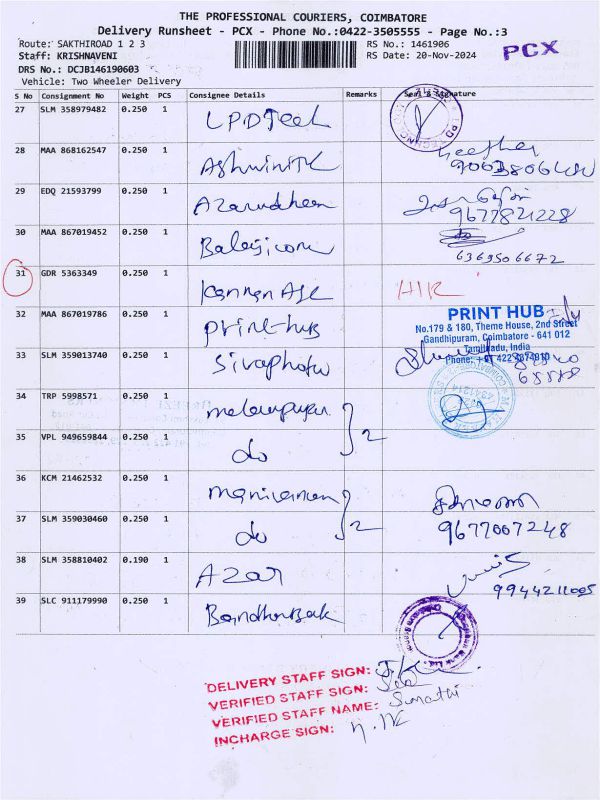 THE PROFESSIONAL COURIERS, COIMBATORE
Delivery Runsheet - PCX - Phone No.:0422-3505555 - Page No.:3
Route: SAKTHIROAD 1 2 3
RS No.: 1461906
Staff: KRISHNAVENI
RS Date: 20-Nov-2024
PCX
DRS No.: DCJB146190603
Vehicle: Two Wheeler Delivery
S No Consignment No Weight PCS Consignee Details Remarks Seal & Signature
27 SLM 358979482 0.250 1 LPDTech
28 MAA 868162547 0.250 1
29 EDQ 21593799 0.250 1 Azarudheen
9677821228
30 MAA 867019452 0.250 1
6369506672
31 GDR 5363349 0.250 1
32 MAA 867019786 0.250 1 print-hub
PRINT HUB
No.179 & 180, Theme House, 2nd Street
Gandhipuram, Coimbatore - 641 012
Tamilnadu, India
33 SLM 359013740 0.250 1
34 TRP 5998571 0.250 1
35 VPL 949659844 0.250 1 do
2
36 KCM 21462532 0.250 1
37 SLM 359030460 0.250 1 do
2
9677007248
38 SLM 358810402 0.190 1 Azar
9944211005
39 SLC 911179990 0.250 1
DELIVERY STAFF SIGN:
VERIFIED STAFF SIGN:
VERIFIED STAFF NAME: Sumathi
INCHARGE SIGN: